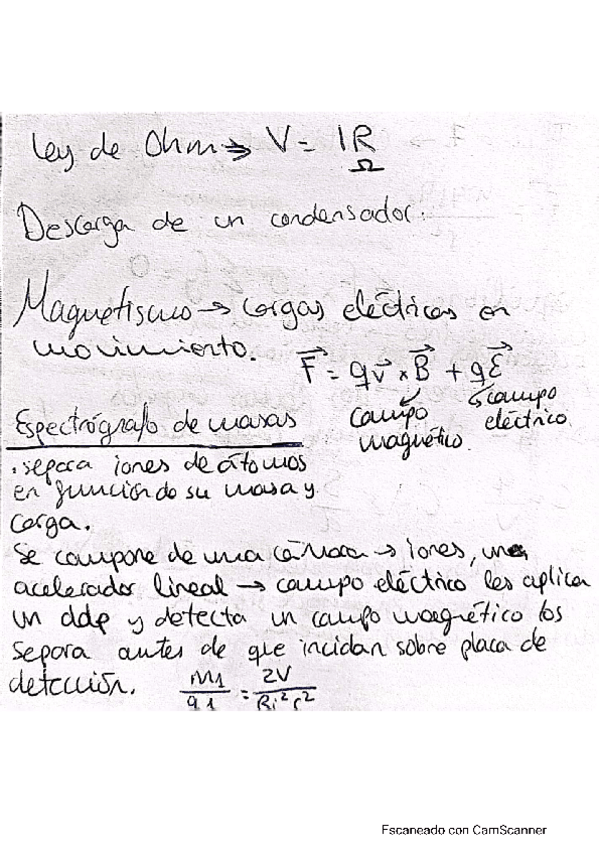 Ley de Ohm → V = IR
Ω
Descarga de un condensador.
Magnetismo → cargas eléctricas en
movimiento. F⃗ = qv⃗ × B⃗ + qE⃗
campo magnético campo eléctrico
Espectrógrafo de masas
. separa iones de átomos
en función de su masa y
carga.
Se compone de una cámara → iones, un
acelerador lineal → campo eléctrico les aplica
un ddp y detecta un campo magnético los
separa antes de que incidan sobre placa de
detección. M1/q1 = 2V/Bi²r²
Escaneado con CamScanner